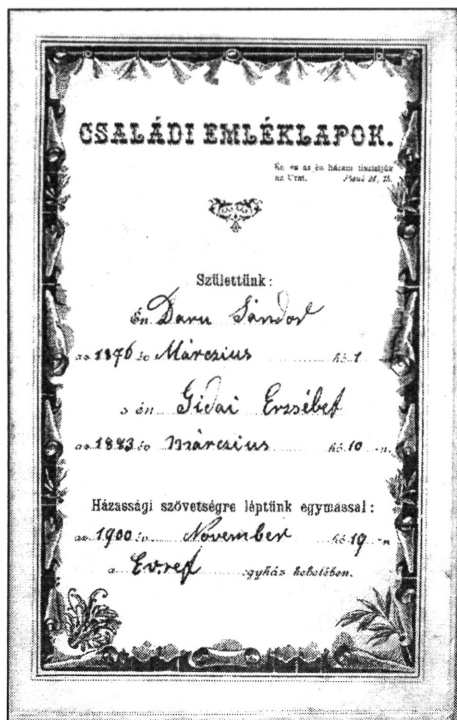 CSALÁDI EMLÉKLAPOK.
Én és az én házam tiszteljük
az Urat. 24, 15.
Születtünk:
Én Daru Sándor
az 1876 év Márczius hó 1
s én Gidai Erzsébet
az 1883 év Márczius hó 10 -n.
Házassági szövetségre léptünk egymással:
az 1900 év November hó 19 -n
a Ev.ref egyház kebelében.